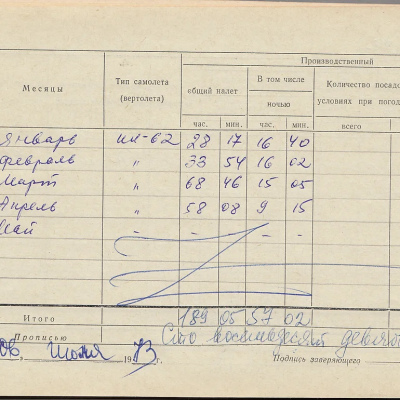 Производственный
Месяцы Тип самолета (вертолета) общий налет В том числе ночью Количество посадо
условиях при погод
час. мин. час. мин. всего
январь ИЛ-62 28 17 16 40
февраль " 33 54 16 02
Март " 68 46 15 05
Апрель " 58 08 9 15
Май - - - -
Итого 189 05 57 02
Прописью Сто восемьдесят девять
06 июня 1973 г. Подпись заверяющего